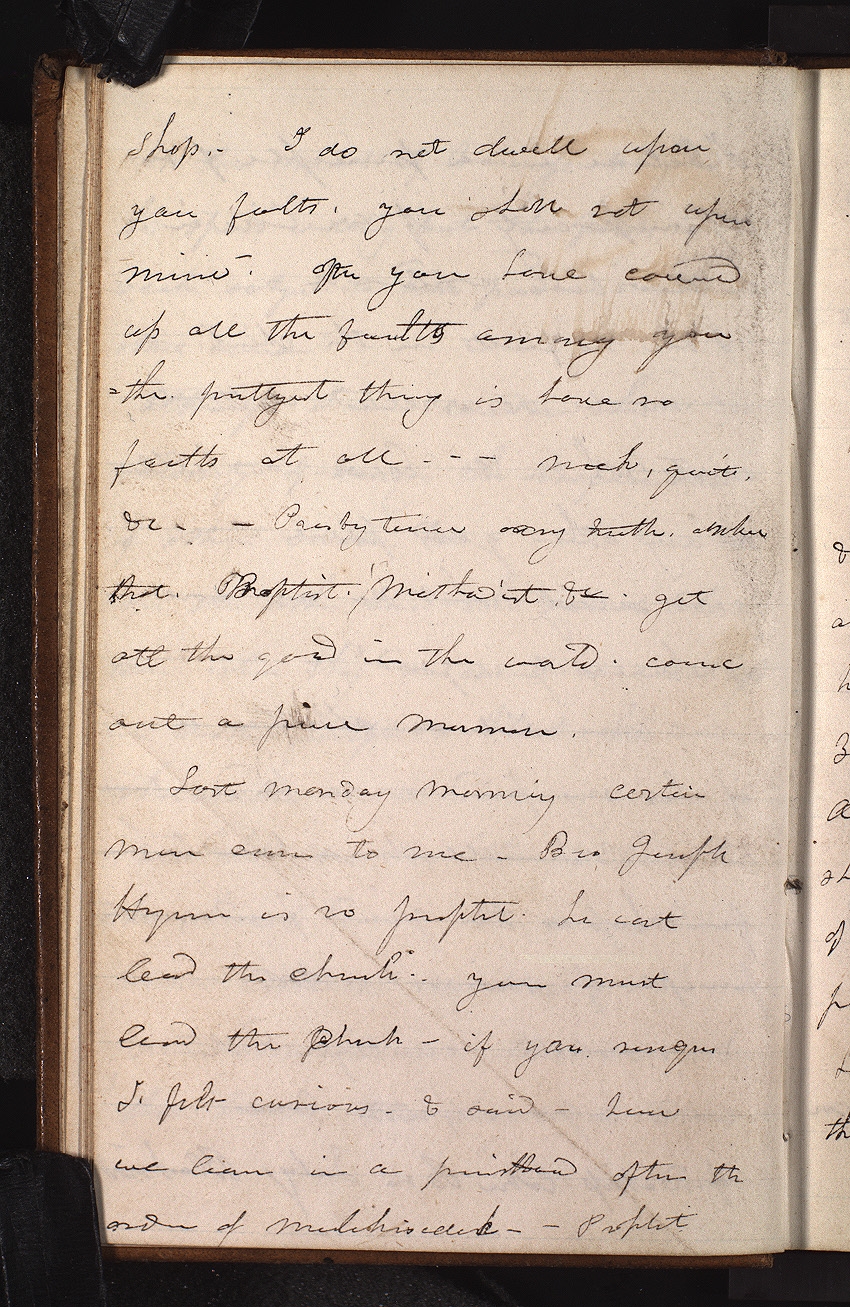 shop.- I do not dwell upon
you falts. you shall not upon
mine. After you have covered
up all the faults among you
=the. prettyest thing is have no
faults at all - - - meek, quite,
&c - - Presbyterian any truth. embrace
that. Baptist. Methodist &c. get
all the good in the world. come
out a pure mormon.
Last monday morning certain
men came to me - Bro Joseph
Hyrum is no prophet. he cant
lead the church.. you must
lead the church - if you resign
I felt curious - & said - here
we learn in a priesthood after the
order of melchisedek - - Prophet